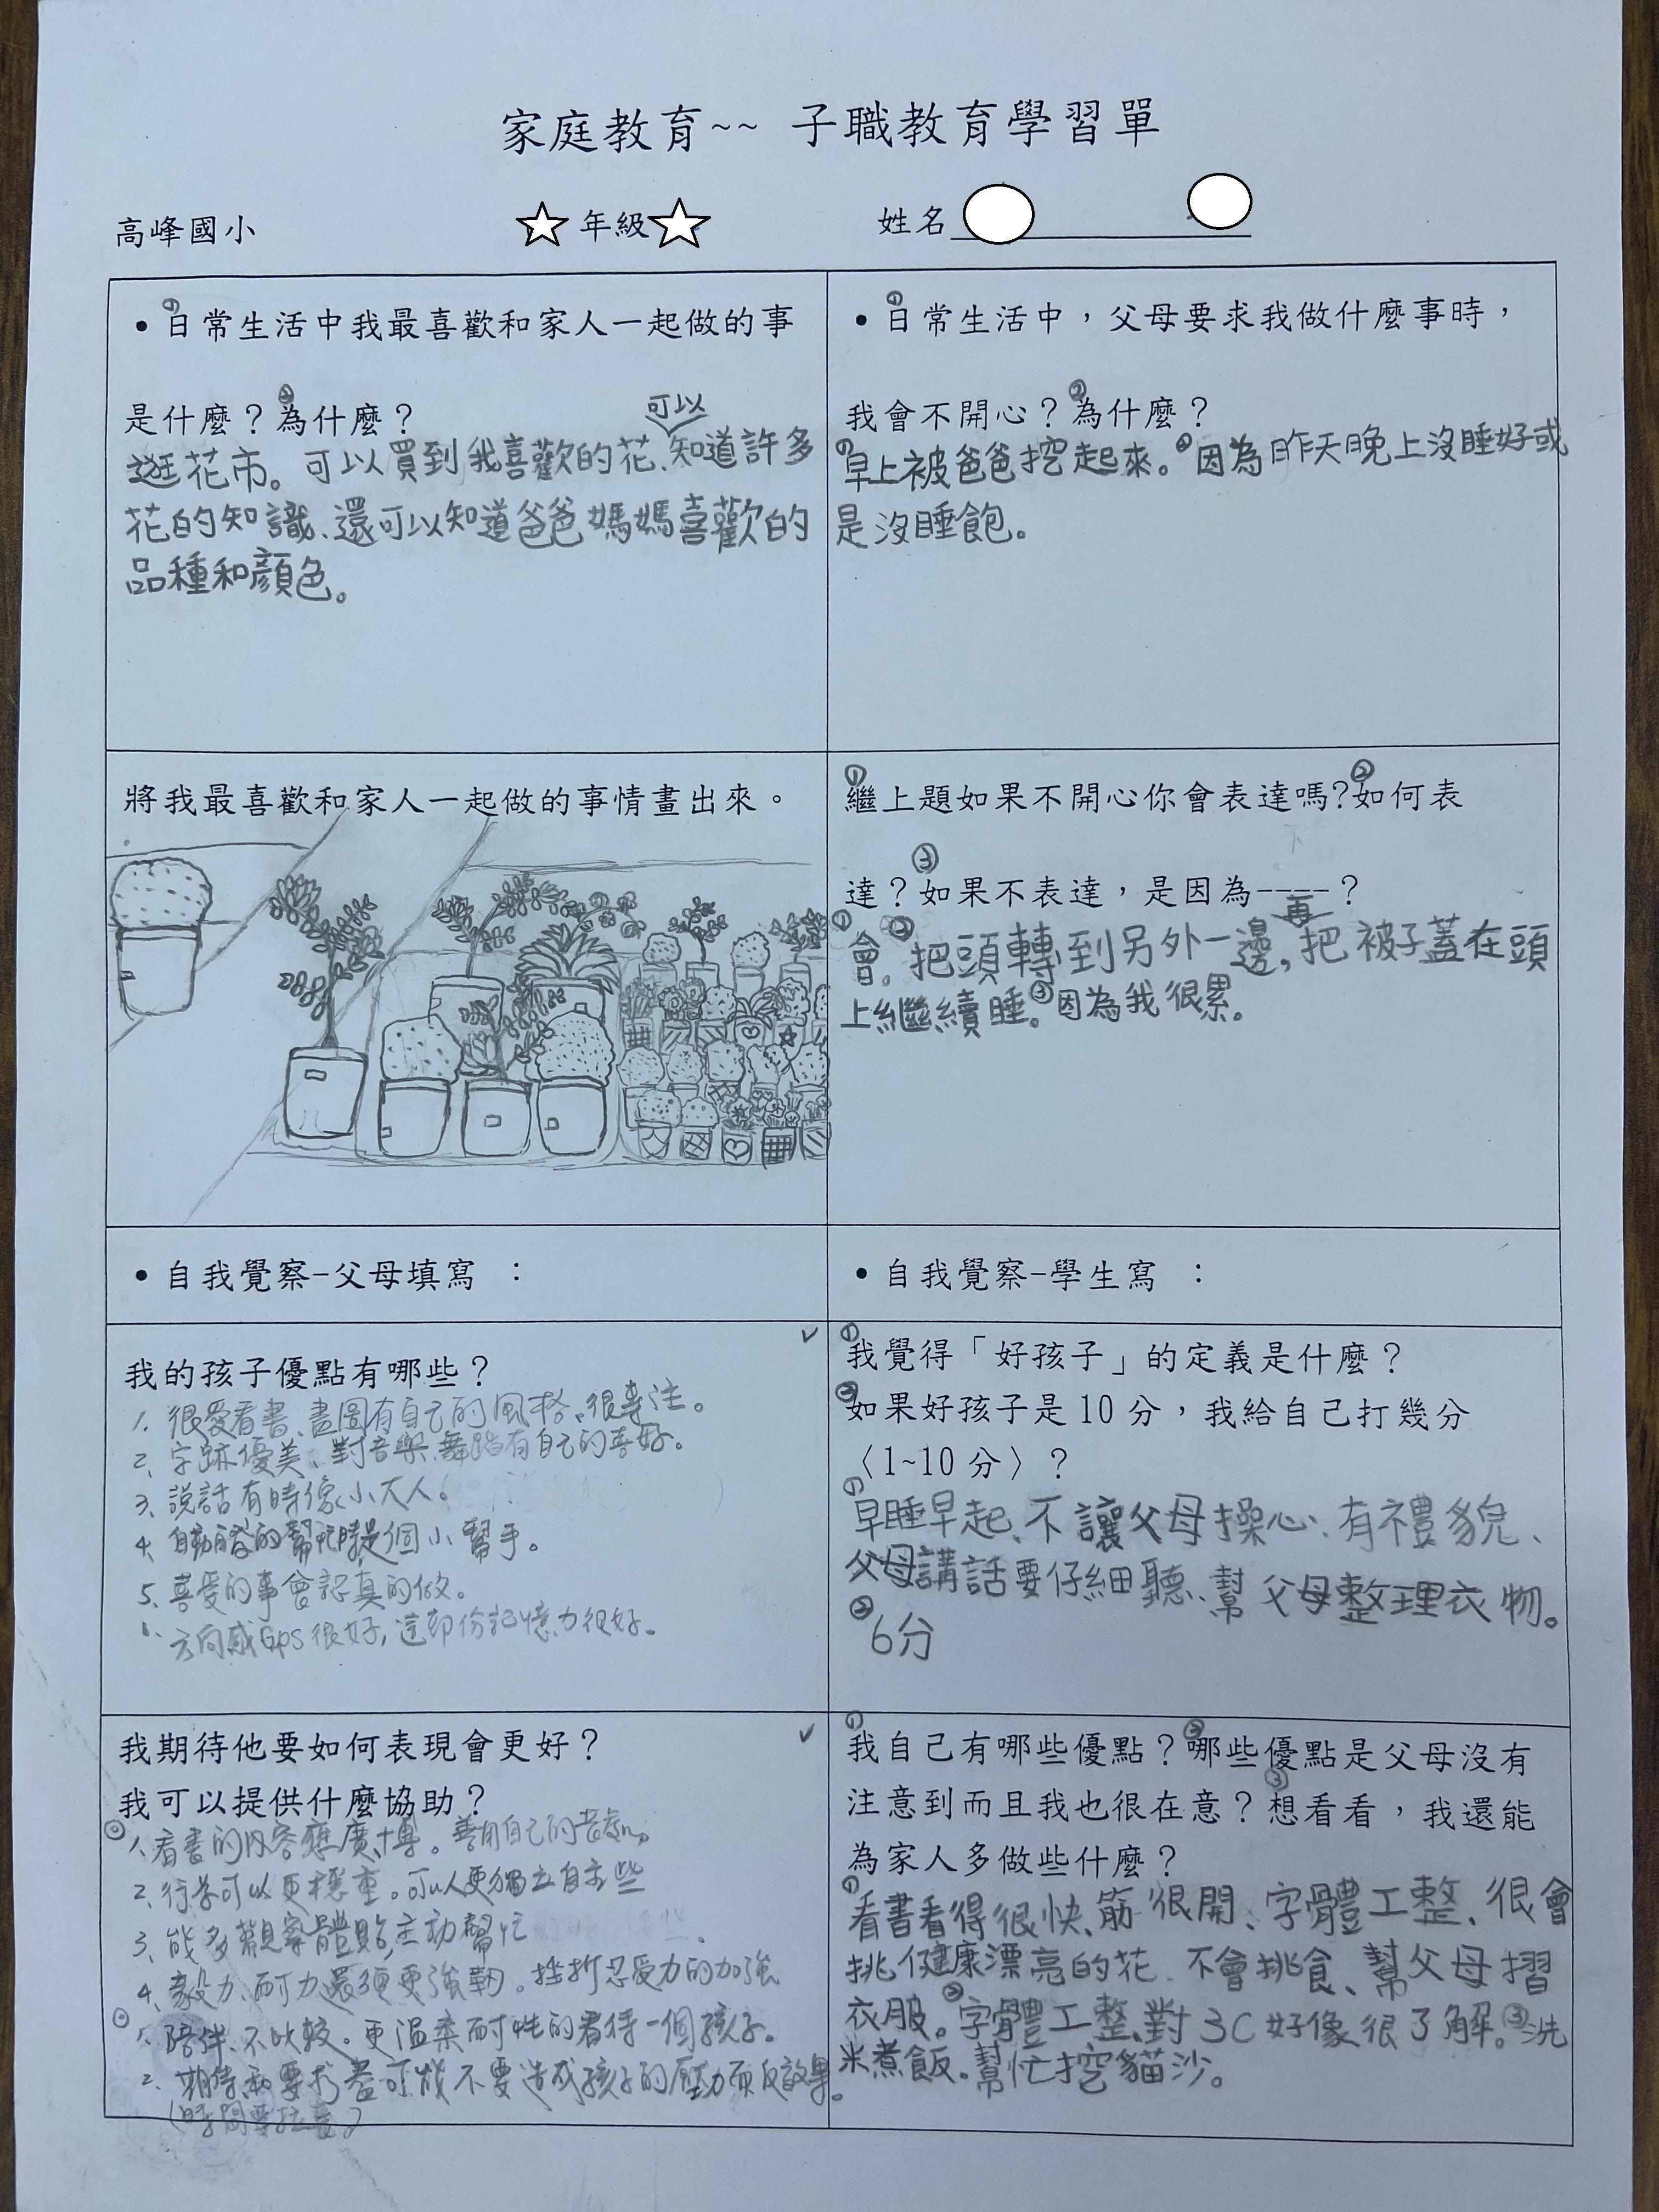 家庭教育~~ 子職教育學習單
高峰國小 年級 姓名
• ①日常生活中我最喜歡和家人一起做的事
是什麼？②為什麼？
逛花市。可以買到我喜歡的花、可以知道許多
花的知識、還可以知道爸爸媽媽喜歡的
品種和顏色。
• ①日常生活中，父母要求我做什麼事時，
我會不開心？②為什麼？
①早上被爸爸挖起來。②因為昨天晚上沒睡好或
是沒睡飽。
將我最喜歡和家人一起做的事情畫出來。
①繼上題如果不開心你會表達嗎?②如何表
達？③如果不表達，是因為----？
①會。②把頭轉到另外一邊，再把被子蓋在頭
上繼續睡。③因為我很累。
• 自我覺察-父母填寫 ：
• 自我覺察-學生寫 ：
我的孩子優點有哪些？
1. 很愛看書、畫圖有自己的風格、很專注。
2、字跡優美、對音樂、舞蹈有自己的喜好。
3、說話有時像小大人。
4、自動自發的幫忙時是個小幫手。
5、喜愛的事會認真的做。
6、方向感Gps很好，這部份記憶力很好。
①我覺得「好孩子」的定義是什麼？
②如果好孩子是10分，我給自己打幾分
〈1~10分〉？
①早睡早起、不讓父母操心、有禮貌、
父母講話要仔細聽、幫父母整理衣物。
②6分
我期待他要如何表現會更好？
我可以提供什麼協助？
1、看書的內容應廣博。善用自己的
2、行為可以更穩重。可以更獨立自主些
3、能多觀察體貼，主動幫忙
4、毅力、耐力還須更強韌。挫折忍受力的加強
1、陪伴、不比較。更溫柔耐性的看待一個孩子。
2、期待和要求盡可能不要造成孩子的壓力而反效果。
(時間要拉長)
①我自己有哪些優點？②哪些優點是父母沒有
注意到而且我也很在意？③想看看，我還能
為家人多做些什麼？
①看書看得很快、筋很開、字體工整、很會
挑健康漂亮的花、不會挑食、幫父母摺
衣服。②字體工整、對3C好像很了解。③洗
米煮飯。幫忙挖貓沙。